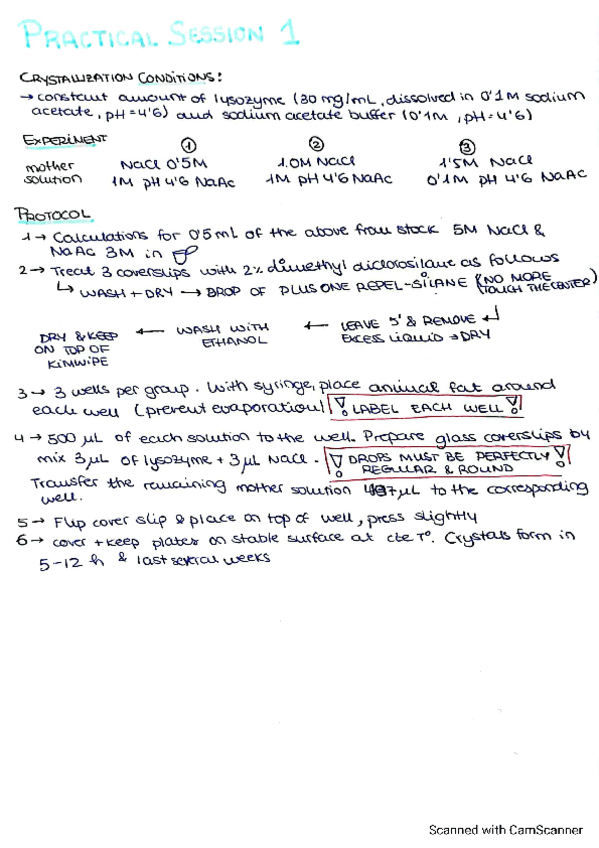 PRACTICAL SESSION 1
CRYSTALLIZATION CONDITIONS:
→ constant amount of lysozyme (30 mg/mL, dissolved in 0'1M sodium
acetate, pH = 4'6) and sodium acetate buffer (0'1M, pH = 4'6)
EXPERIMENT ① ② ③
mother NaCl 0'5M 1.0M NaCl 1'5M NaCl
solution 1M pH 4'6 NaAc 1M pH 4'6 NaAc 0'1M pH 4'6 NaAc
PROTOCOL
1 → Calculations for 0'5mL of the above from stock 5M NaCl &
NaAc 3M in
2 → Treat 3 coverslips with 2% dimethyl diclorosilane as follows
↳ WASH + DRY → DROP OF PLUSONE REPEL-SILANE (NO MORE
TOUCH THE CENTER)
LEAVE 5' & REMOVE
EXCESS LIQUID → DRY
← WASH WITH
ETHANOL
← DRY & KEEP
ON TOP OF
KIMWIPE
3 → 3 wells per group. With syringe, place animal fat around
each well (prevent evaporation) ! LABEL EACH WELL !
4 → 500 µL of each solution to the well. Prepare glass coverslips by
mix 3 µL of lysozyme + 3 µL NaCl. ! DROPS MUST BE PERFECTLY !
REGULAR & ROUND
Transfer the remaining mother solution 497 µL to the corresponding
well.
5 → Flip cover slip & place on top of well, press slightly
6 → cover + keep plates on stable surface at cte Tº. Crystals form in
5-12 h & last several weeks
Scanned with CamScanner